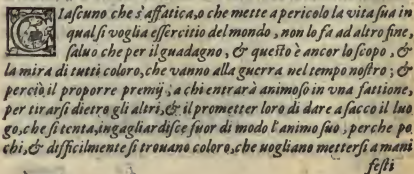 Ciascuno che s'affatica, o che mette a pericolo la vita sua in
qual si voglia essercitio del mondo, non lo fa ad altro fine,
saluo che per il guadagno, & questo è ancor lo scopo, &
la mira di tutti coloro, che vanno alla guerra nel tempo nostro; &
perciò il proporre premij, a chi entrarà animoso in vna fattione,
per tirarsi dietro gli altri, & il prometter loro di dare a sacco il luo
go, che si tenta, ingagliardisce fuor di modo l'animo suo, perche po
chi, & difficilmente si trouano coloro, che uogliano mettersi a mani
festi